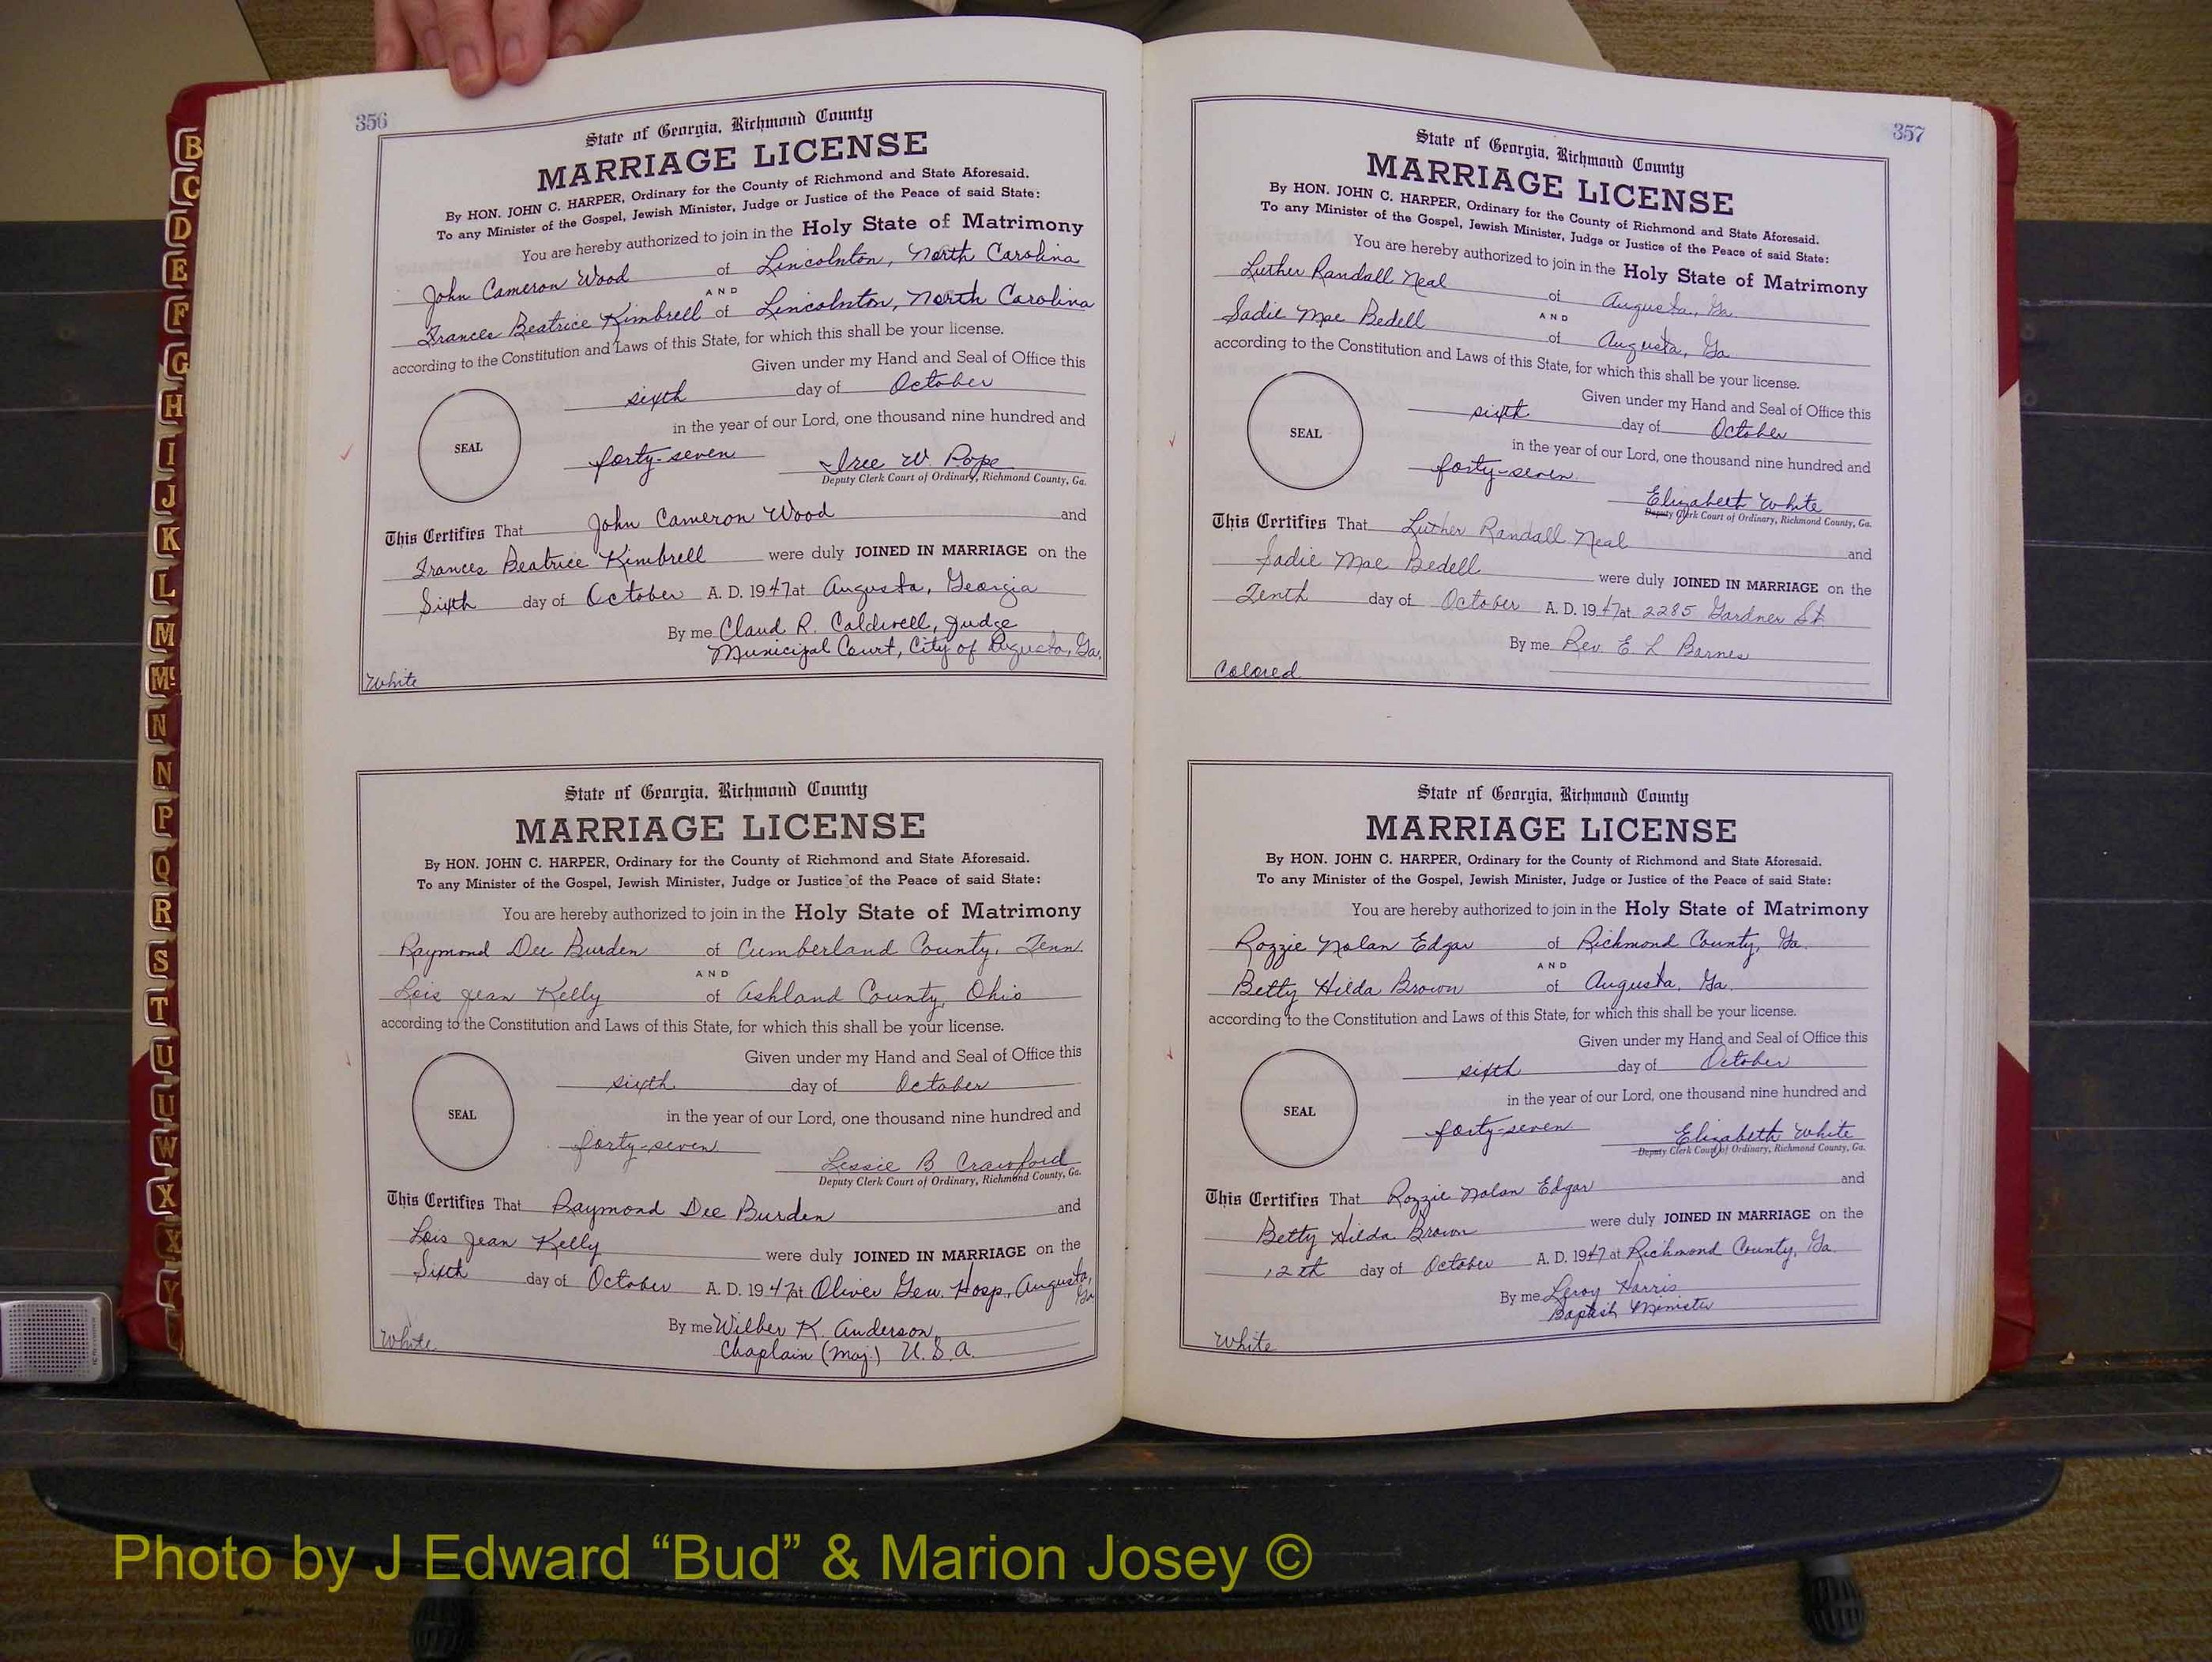 356
State of Georgia, Richmond County
MARRIAGE LICENSE
By HON. JOHN C. HARPER, Ordinary for the County of Richmond and State Aforesaid.
To any Minister of the Gospel, Jewish Minister, Judge or Justice of the Peace of said State:
You are hereby authorized to join in the Holy State of Matrimony
John Cameron Wood of Lincolnton, North Carolina
AND
Frances Beatrice Kimbrell of Lincolnton, North Carolina
according to the Constitution and Laws of this State, for which this shall be your license.
Given under my Hand and Seal of Office this
sixth day of October
in the year of our Lord, one thousand nine hundred and
SEAL
forty-seven Iree W. Pope
Deputy Clerk Court of Ordinary, Richmond County, Ga.
This Certifies That John Cameron Wood and
Frances Beatrice Kimbrell were duly JOINED IN MARRIAGE on the
Sixth day of October A. D. 1947 at Augusta, Georgia
By me Claud R. Caldwell, Judge
Municipal Court, City of Augusta, Ga.
White
State of Georgia, Richmond County
MARRIAGE LICENSE
By HON. JOHN C. HARPER, Ordinary for the County of Richmond and State Aforesaid.
To any Minister of the Gospel, Jewish Minister, Judge or Justice of the Peace of said State:
You are hereby authorized to join in the Holy State of Matrimony
Raymond Dee Burden of Cumberland County, Tenn.
AND
Lois Jean Kelly of Ashland County, Ohio
according to the Constitution and Laws of this State, for which this shall be your license.
Given under my Hand and Seal of Office this
sixth day of October
in the year of our Lord, one thousand nine hundred and
SEAL
forty-seven Lessie B Crawford
Deputy Clerk Court of Ordinary, Richmond County, Ga.
This Certifies That Raymond Dee Burden and
Lois Jean Kelly were duly JOINED IN MARRIAGE on the
Sixth day of October A. D. 1947 at Oliver Gen. Hosp., Augusta, Ga
By me Wilber K. Anderson,
Chaplain (Maj.) U. S. A.
White
357
State of Georgia, Richmond County
MARRIAGE LICENSE
By HON. JOHN C. HARPER, Ordinary for the County of Richmond and State Aforesaid.
To any Minister of the Gospel, Jewish Minister, Judge or Justice of the Peace of said State:
You are hereby authorized to join in the Holy State of Matrimony
Luther Randall Neal of Augusta, Ga.
AND
Sadie Mae Bedell of Augusta, Ga
according to the Constitution and Laws of this State, for which this shall be your license.
Given under my Hand and Seal of Office this
sixth day of October
in the year of our Lord, one thousand nine hundred and
SEAL
forty-seven Elizabeth White
Deputy Clerk Court of Ordinary, Richmond County, Ga.
This Certifies That Luther Randall Neal and
Sadie Mae Bedell were duly JOINED IN MARRIAGE on the
Tenth day of October A. D. 1947 at 2285 Gardner St.
By me Rev. E L Barnes
Colored
State of Georgia, Richmond County
MARRIAGE LICENSE
By HON. JOHN C. HARPER, Ordinary for the County of Richmond and State Aforesaid.
To any Minister of the Gospel, Jewish Minister, Judge or Justice of the Peace of said State:
You are hereby authorized to join in the Holy State of Matrimony
Rozzie Nolan Edgar of Richmond County, Ga.
AND
Betty Hilda Brown of Augusta, Ga.
according to the Constitution and Laws of this State, for which this shall be your license.
Given under my Hand and Seal of Office this
sixth day of October
in the year of our Lord, one thousand nine hundred and
SEAL
forty-seven Elizabeth White
Deputy Clerk Court of Ordinary, Richmond County, Ga.
This Certifies That Rozzie Nolan Edgar and
Betty Hilda Brown were duly JOINED IN MARRIAGE on the
12th day of October A. D. 1947 at Richmond County, Ga.
By me Leroy Harris
Baptist Minister
White
B
C
D
E
F
G
H
I
J
K
L
M
Mc
N
N
P
Q
R
S
T
U
U
W
X
X
Y
Photo by J Edward “Bud” & Marion Josey ©